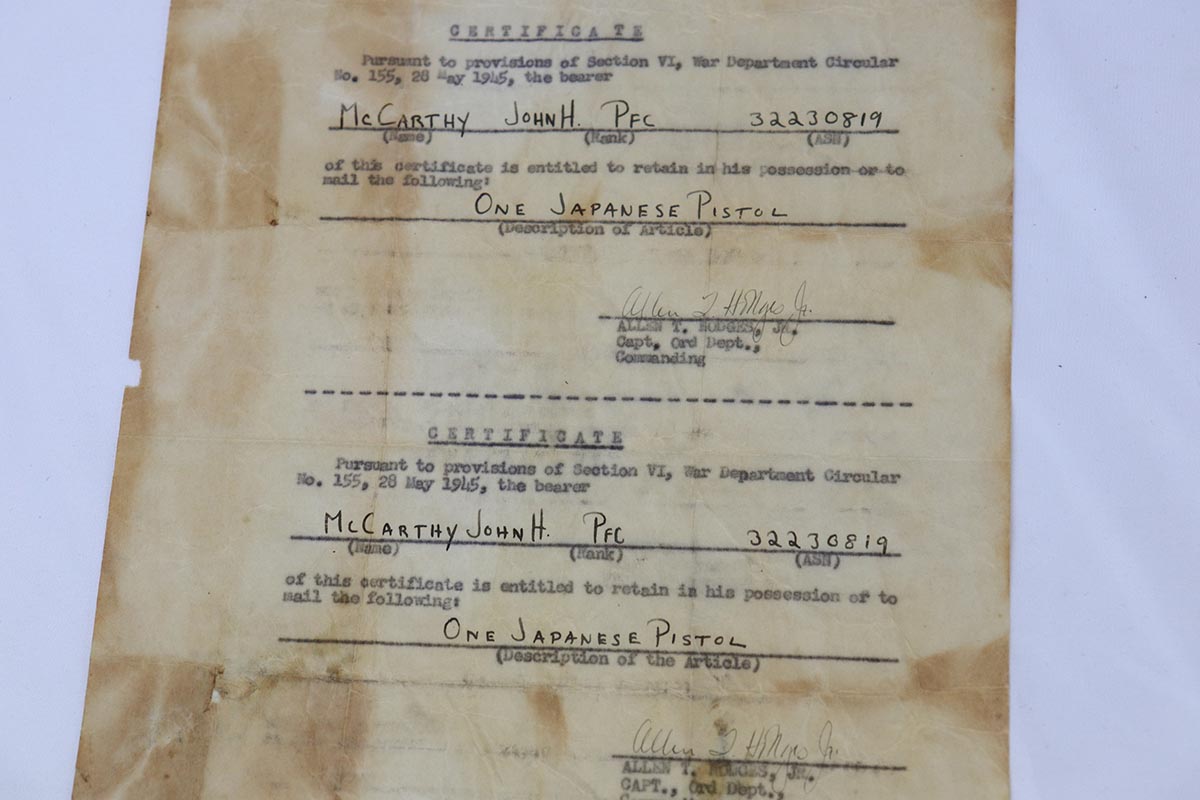 CERTIFICATE
Pursuant to provisions of Section VI, War Department Circular
No. 155, 28 May 1945, the bearer
McCARTHY JOHN H. PFC 32230819
(Name) (Rank) (ASN)
of this certificate is entitled to retain in his possession or to
mail the following:
ONE JAPANESE PISTOL
(Description of Article)
Allen T Hodges Jr.
ALLEN T. HODGES, JR.
Capt, Ord Dept.,
Commanding
CERTIFICATE
Pursuant to provisions of Section VI, War Department Circular
No. 155, 28 May 1945, the bearer
McCARTHY JOHN H. PFC 32230819
(Name) (Rank) (ASN)
of this certificate is entitled to retain in his possession or to
mail the following:
ONE JAPANESE PISTOL
(Description of the Article)
Allen T Hodges Jr.
ALLEN T. HODGES, JR.
CAPT., Ord Dept.,